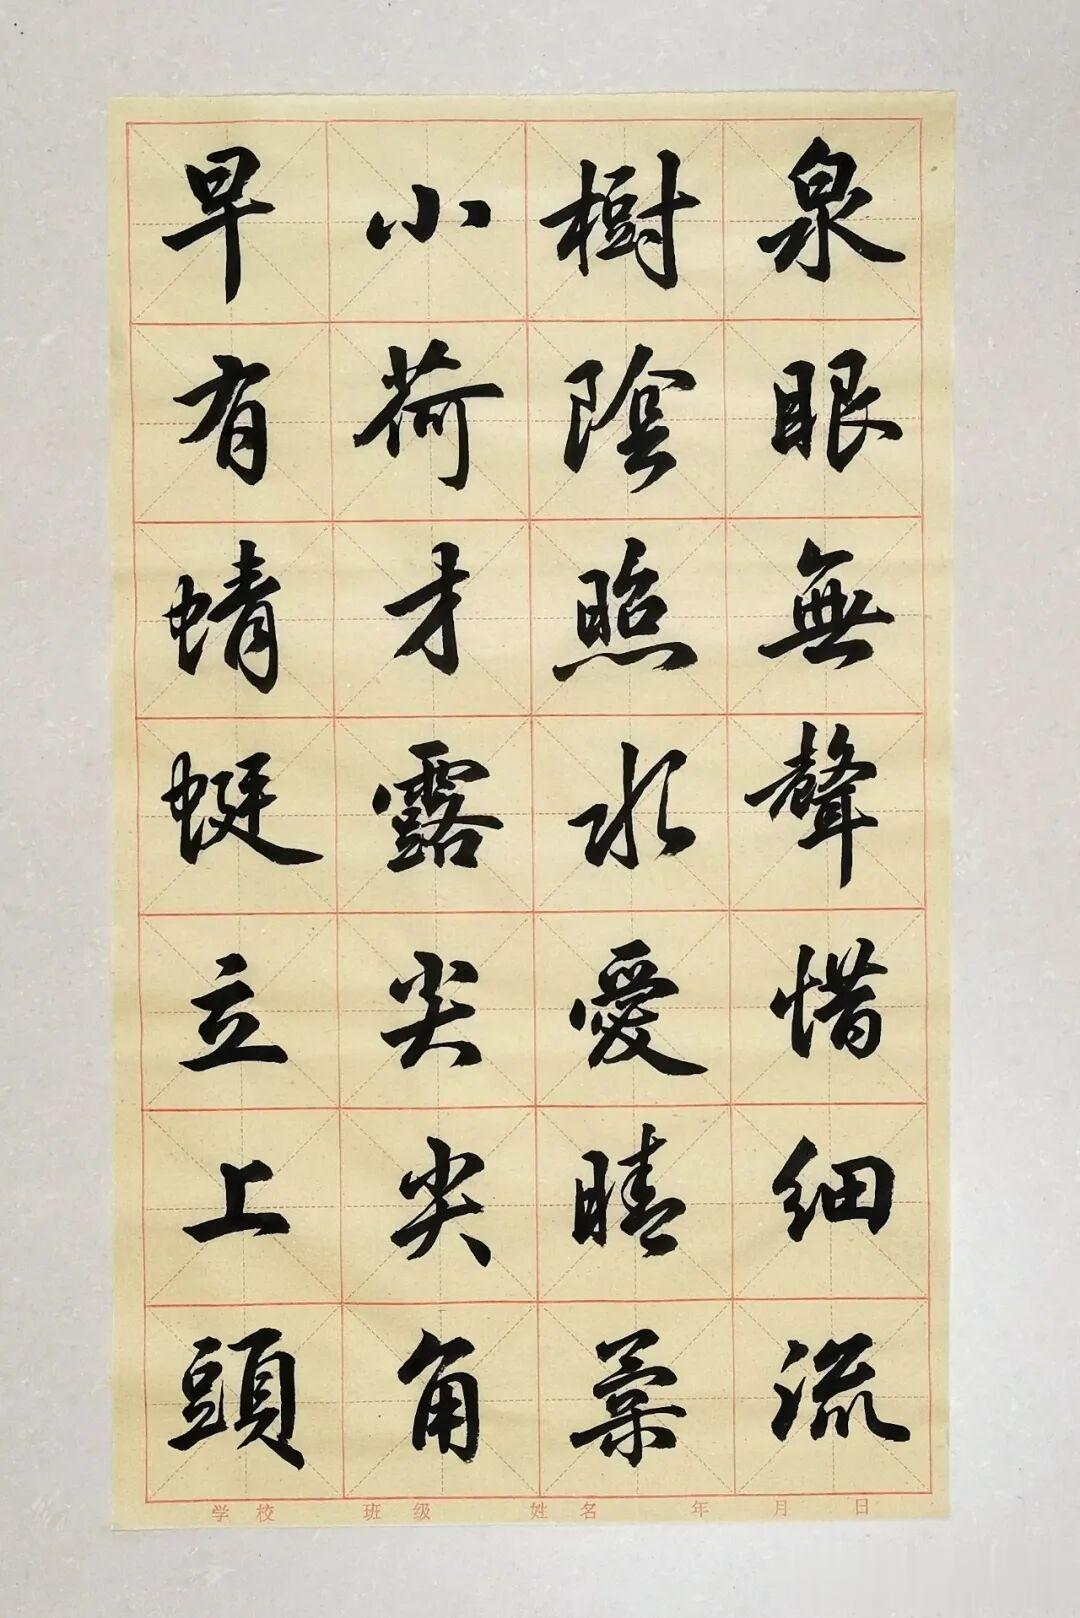 泉眼無聲惜細流
樹陰照水愛晴柔
小荷才露尖尖角
早有蜻蜓立上頭
学校 班级 姓名 年 月 日